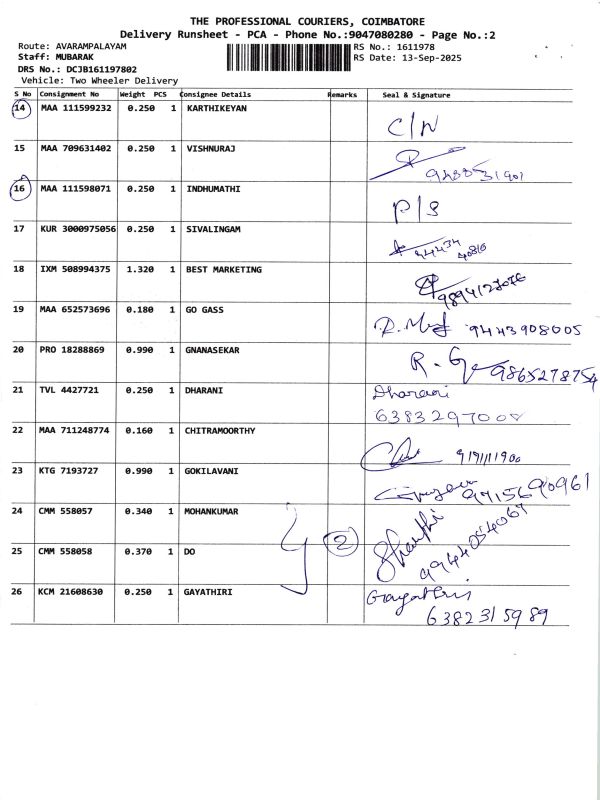 THE PROFESSIONAL COURIERS, COIMBATORE
Delivery Runsheet - PCA - Phone No.:9047080280 - Page No.:2
Route: AVARAMPALAYAM
RS No.: 1611978
Staff: MUBARAK
RS Date: 13-Sep-2025
DRS No.: DCJB161197802
Vehicle: Two Wheeler Delivery
S No Consignment No Weight PCS Consignee Details Remarks Seal & Signature
14 MAA 111599232 0.250 1 KARTHIKEYAN C/N
15 MAA 709631402 0.250 1 VISHNURAJ
16 MAA 111598071 0.250 1 INDHUMATHI P/S
17 KUR 3000975056 0.250 1 SIVALINGAM
18 IXM 508994375 1.320 1 BEST MARKETING
19 MAA 652573696 0.180 1 GO GASS 9443908005
20 PRO 18288869 0.990 1 GNANASEKAR 9865278754
21 TVL 4427721 0.250 1 DHARANI Dharani
22 MAA 711248774 0.160 1 CHITRAMOORTHY
23 KTG 7193727 0.990 1 GOKILAVANI
24 CMM 558057 0.340 1 MOHANKUMAR 2 Shanthi
25 CMM 558058 0.370 1 DO 9944054067
26 KCM 21608630 0.250 1 GAYATHIRI Gayathiri
6382315989